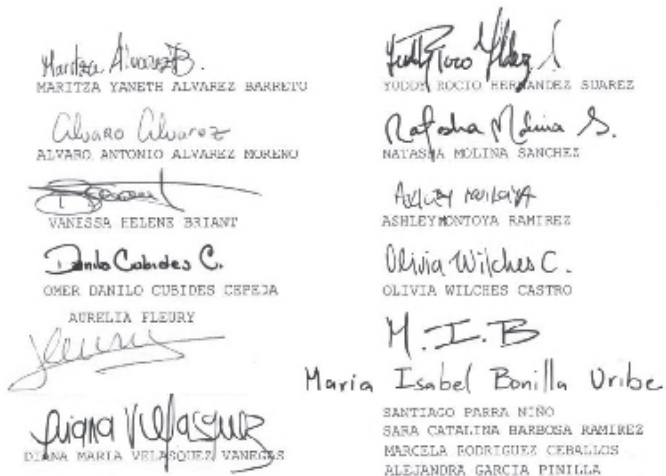 Maritza Alvarez B.
MARITZA YANETH ALVAREZ BARRETO
Alvaro Alvarez
ALVARO ANTONIO ALVAREZ MORENO
VANESSA HELENE BRIANT
Danilo Cubides C.
OMER DANILO CUBIDES CEPEDA
AURELIA FLEURY
Diana Velasquez
DIANA MARIA VELASQUEZ VANEGAS
YUDDY ROCIO HERNANDEZ SUAREZ
Natasha Molina S.
NATASHA MOLINA SANCHEZ
ASHLEY MONTOYA RAMIREZ
Olivia Wilches C.
OLIVIA WILCHES CASTRO
M.I.B
Maria Isabel Bonilla Uribe
SANTIAGO PARRA NIÑO
SARA CATALINA BARBOSA RAMIREZ
MARCELA RODRIGUEZ CEBALLOS
ALEJANDRA GARCIA PINILLA